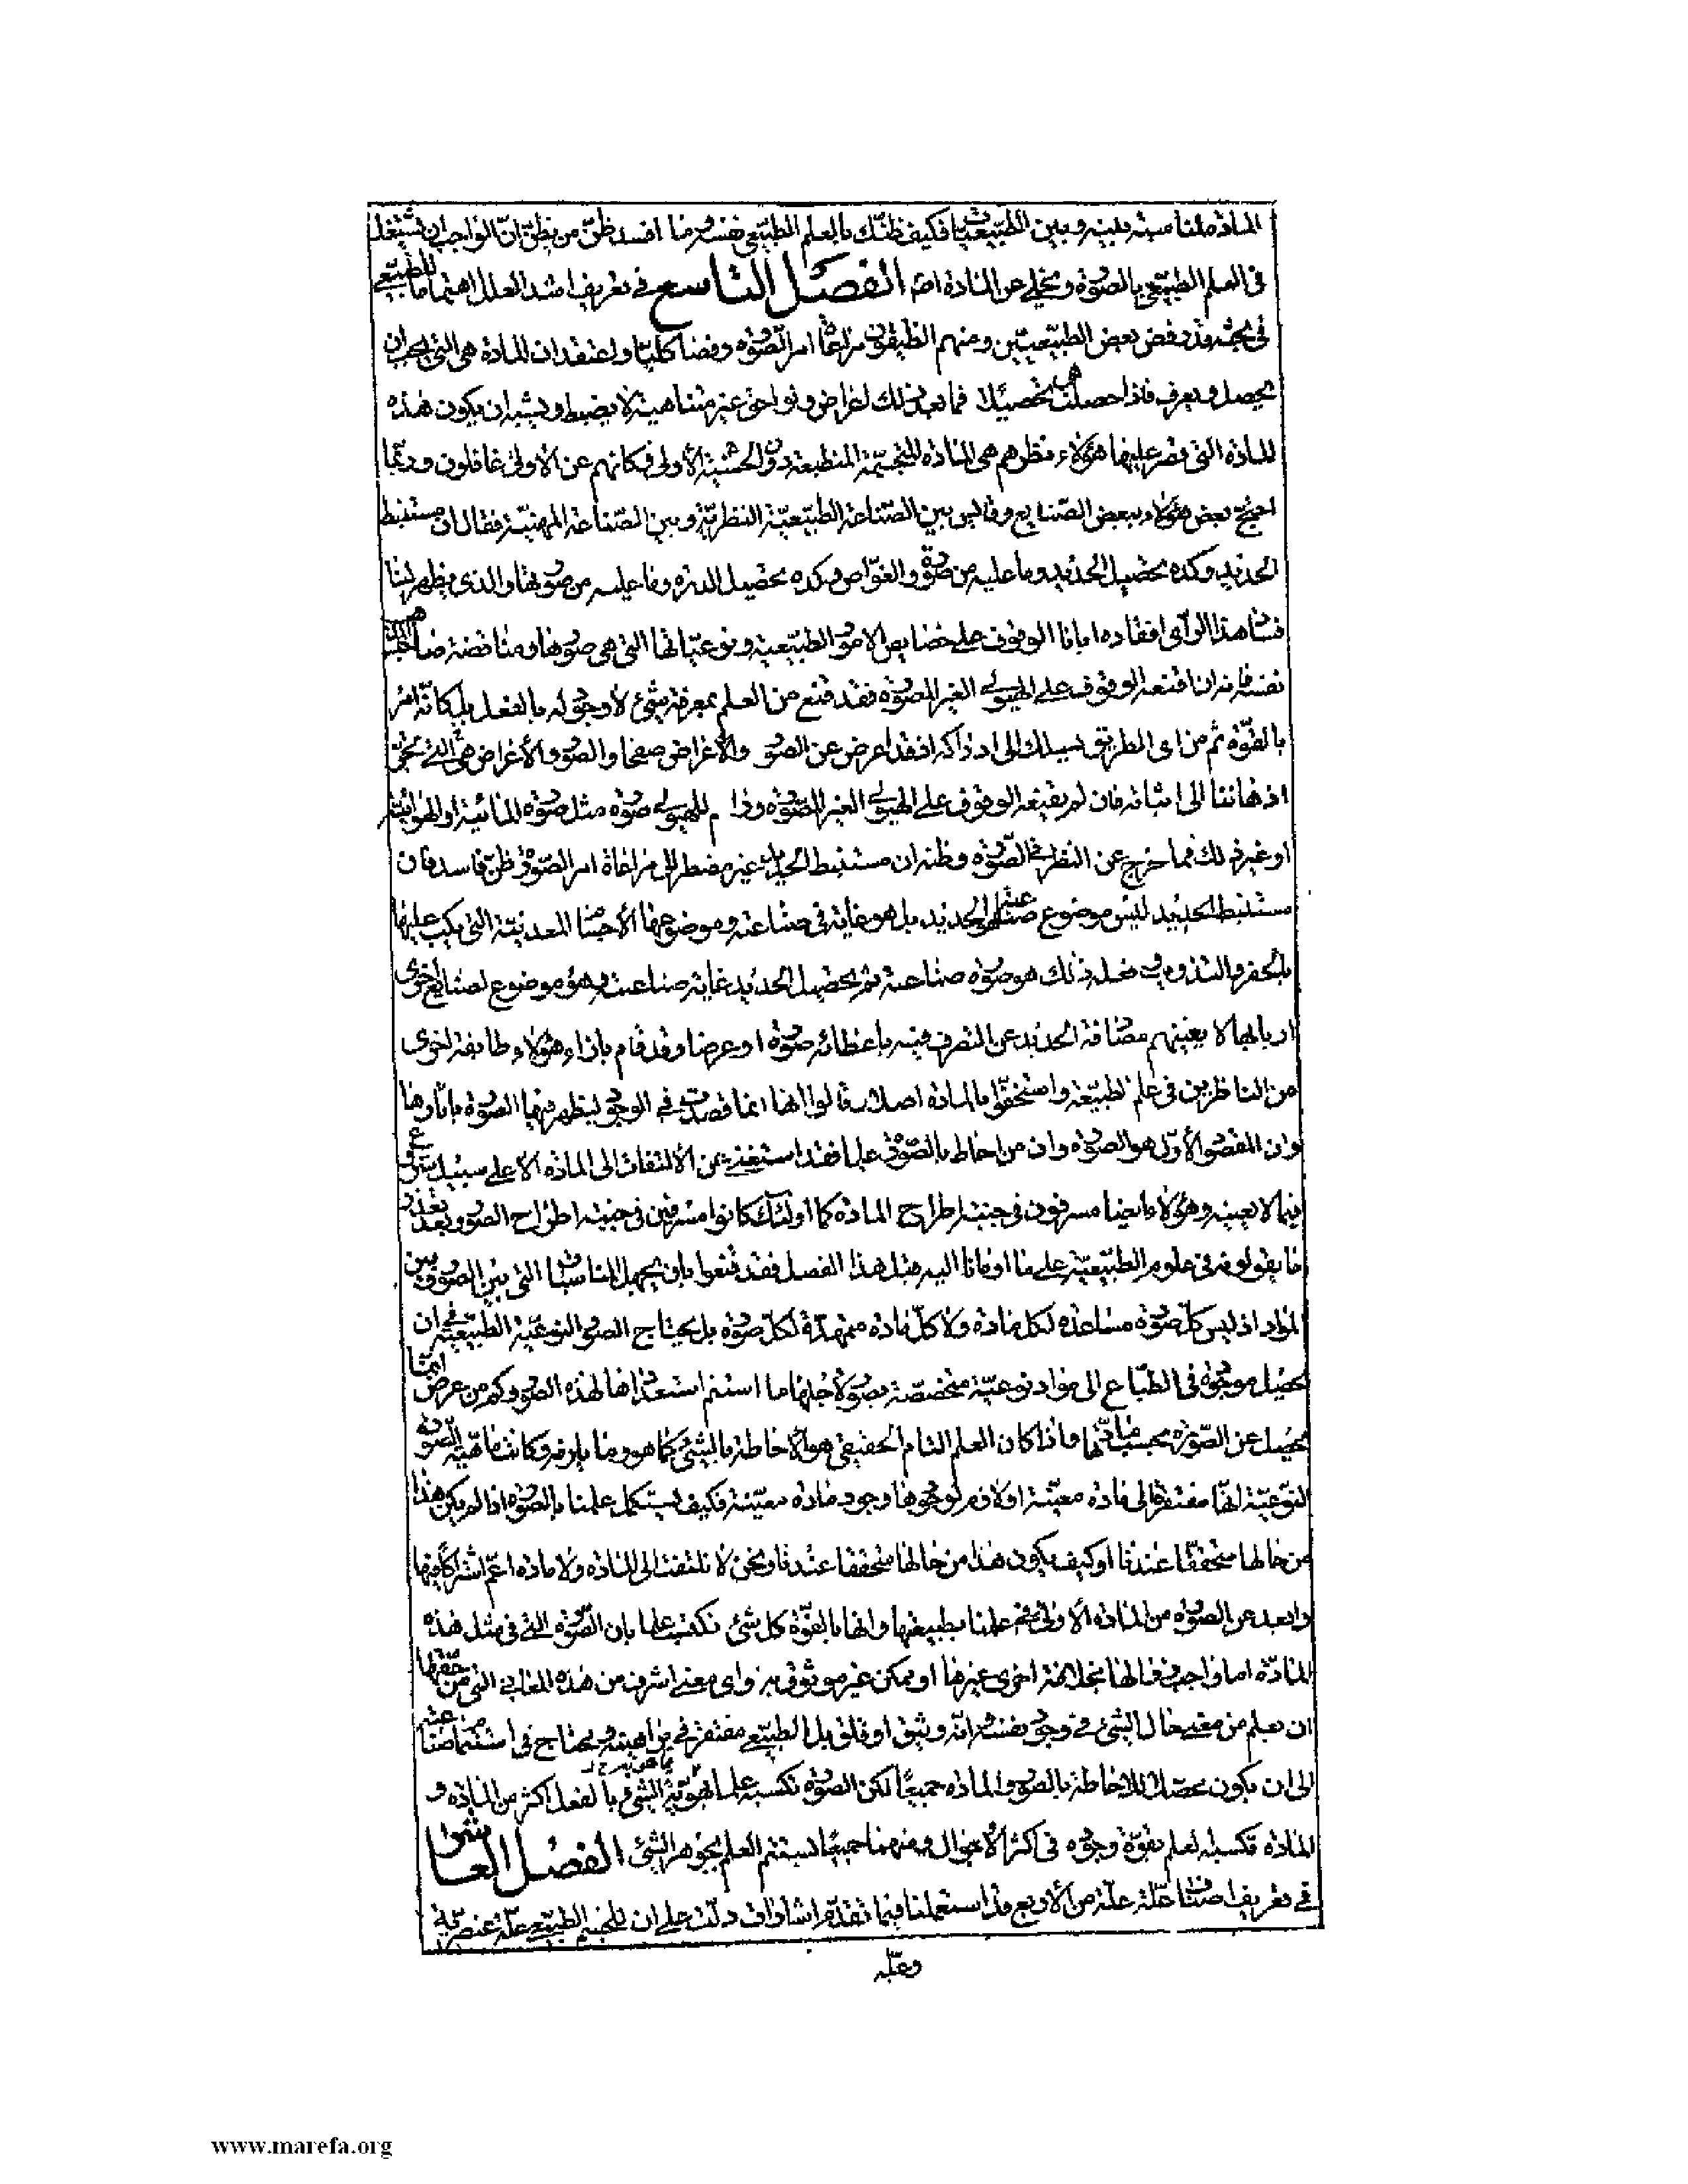 المادة لمناسبته بينه وبين الطبيعيات فكيف ظنك بالعلم الطبيعي نفسه وما افسد ظن من يظن ان الواجب ان يشتغل
فى العلم الطبيعي بالصورة ويخلى عن المادة اصلا الفصل التاسع فى تعريف اشد العلل اهتماما للطبيعي
فى بحثه قد رفض بعض الطبيعيين ومنهم انطيقون مراعاة امر الصورة رفضا كليا واعتقد ان المادة هى التى يجب ان
يحصل ويعرف فاذا حصلت هى تحصيلا فما بعد ذلك اعراض ولواحق غير متناهية لا يضبط ويشبه ان يكون هذه
المادة التى قصر عليها هؤلاء نظرهم هى المادة المتجسمة المنطبعة دون الاولى فكانهم عن الاولى غافلون وربما
احتج بعض هؤلاء ببعض الصنايع وقايس بين الصناعة الطبيعية النظرية وبين الصناعة المهنية فقال ان مستنبط
الحديد وكده تحصيل الحديد وما عليه من صورته والغواص وكده تحصيل الدرة وما عليه من صورتها والذى يظهر لنا
فساد هذا الرأى افقاده ايانا الوقوف على خصايص الامور الطبيعية ونوعياتها التى هى صورها ومناقضة صاحب هذا المذهب
نفسه فانه ان اقنعه الوقوف على الهيولى الغير المصورة فقد قنع من العلم بمعرفة شئ لا وجود له بالفعل بل كانه امر
بالقوة ثم من اى الطريق يسلك الى ادراكه اذ قد اعرض عن الصور والاعراض صفحا والصور والاعراض هى التى تجر
اذهاننا الى اثباته فان لم يقنعه الوقوف على الهيولى الغير المصورة ورام للهيولى صورة مثل صورة المائية او الهوائية
او غير ذلك فما خرج عن النظر فى الصورة وظنه ان مستنبط الحديد غير مضطر الى مراعاة امر الصورة ظن فاسد فان
مستنبط الحديد ليس موضوع صناعته هو الحديد بل هو غاية فى صناعته وموضوعها الاجسام المعدنية التى يكب عليها
بالحفر والتذويب وفعله ذلك هو صورة صناعته ثم تحصيل الحديد غاية صناعته وهو موضوع لصنايع اخرى
اربابها لا يعنيهم مصادفة الحديد عن التصرف فيه باعطائه صورة او عرضا وقد قام بازاء هؤلاء طايفة اخرى
من الناظرين فى علم الطبيعة واستخفوا بالمادة اصلا وقالوا انها انما قصدت فى الوجود ليظهر فيها الصورة باثارها
وان المقصود الاول هو الصورة وان من احاط بالصورة علما فقد استغنى عن الالتفات الى المادة الا على سبيل شروع
فيما لا يعنيه وهؤلاء ايضا مسرفون فى جنبة اطراح المادة كما اولئك كانوا مسرفين فى جنبة اطراح الصور وبعد تعذر
ما يقولونه فى علوم الطبيعية على ما اومأنا اليه قبل هذا الفصل فقد قنعوا بان يجهل المناسبات التى بين الصور وبين
المواد اذ ليس كل صورة مساعدة لكل مادة ولا كل مادة متمهدة لكل صورة بل يحتاج الصور النوعية الطبيعية فى ان
تحصل موجودة فى الطباع الى مواد نوعية متخصصة بصور لاجلها ما استتم استعدادها لهذه الصور وكم من عرض انما
يحصل عن الصورة بحسب مادتها واذا كان العلم التام الحقيقى هو الاحاطة بالشئ كما هو وما يلزمه وكانت ماهية الصورة
النوعية انها مفتقرة الى مادة معينة او لازم لوجودها وجود مادة معينة فكيف يستكمل علمنا بالصورة اذا لم يكن هذا
من حالها متحققا عندنا او كيف يكون هذا من حالها متحققا عندنا ونحن لا نلتفت الى المادة ولا مادة اعم اشتراكا فيها
وابعد عن الصورة من المادة الاولى وفى علمنا بطبيعتها وانها بالقوة كل شئ نكتسب علما بان الصورة التى فى مثل هذه
المادة اما واجب زوالها بخلافة اخرى غيرها او ممكن غير موثوق به واى معنى اشرف من هذه المعانى التى من حقها
ان يعلم من معنى حال الشئ فى وجود نفسه انه وثيق او قلق بل الطبيعى مفتقر فى براهينه ومحتاج فى استتمام صناعته
الى ان يكون محصلا للاحاطة بالصورة والمادة جميعا لكن الصورة تكسبه علما بهوية الشئ بالفعل اكثر من المادة و
المادة تكسبه العلم بقوة وجوده فى اكثر الاحوال ومنهما جميعا يستتم العلم بجوهر الشئ الفصل العاشر
فى تعريف اصناف علة علة من الاربع قد استعملنا فيما تقدم اشارات دلت على ان للجسم الطبيعى علة عنصرية
وعلة
www.marefa.org